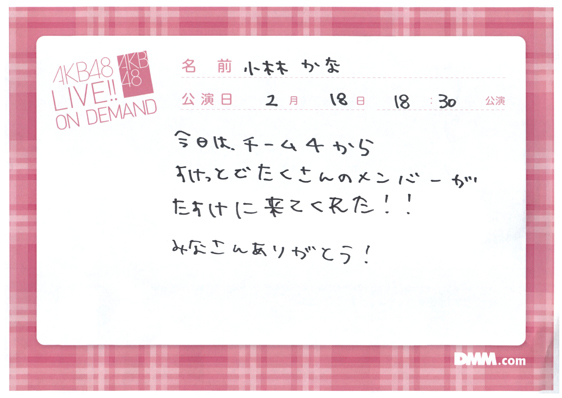 AKB48
LIVE!!
ON DEMAND
AKB
48
名 前 小林 かな
公演日 2 月 18 日 18 : 30 公演
今日は、チーム4から
すけっとでたくさんのメンバーが
たすけに来てくれた!!
みなさんありがとう!
DMM.com